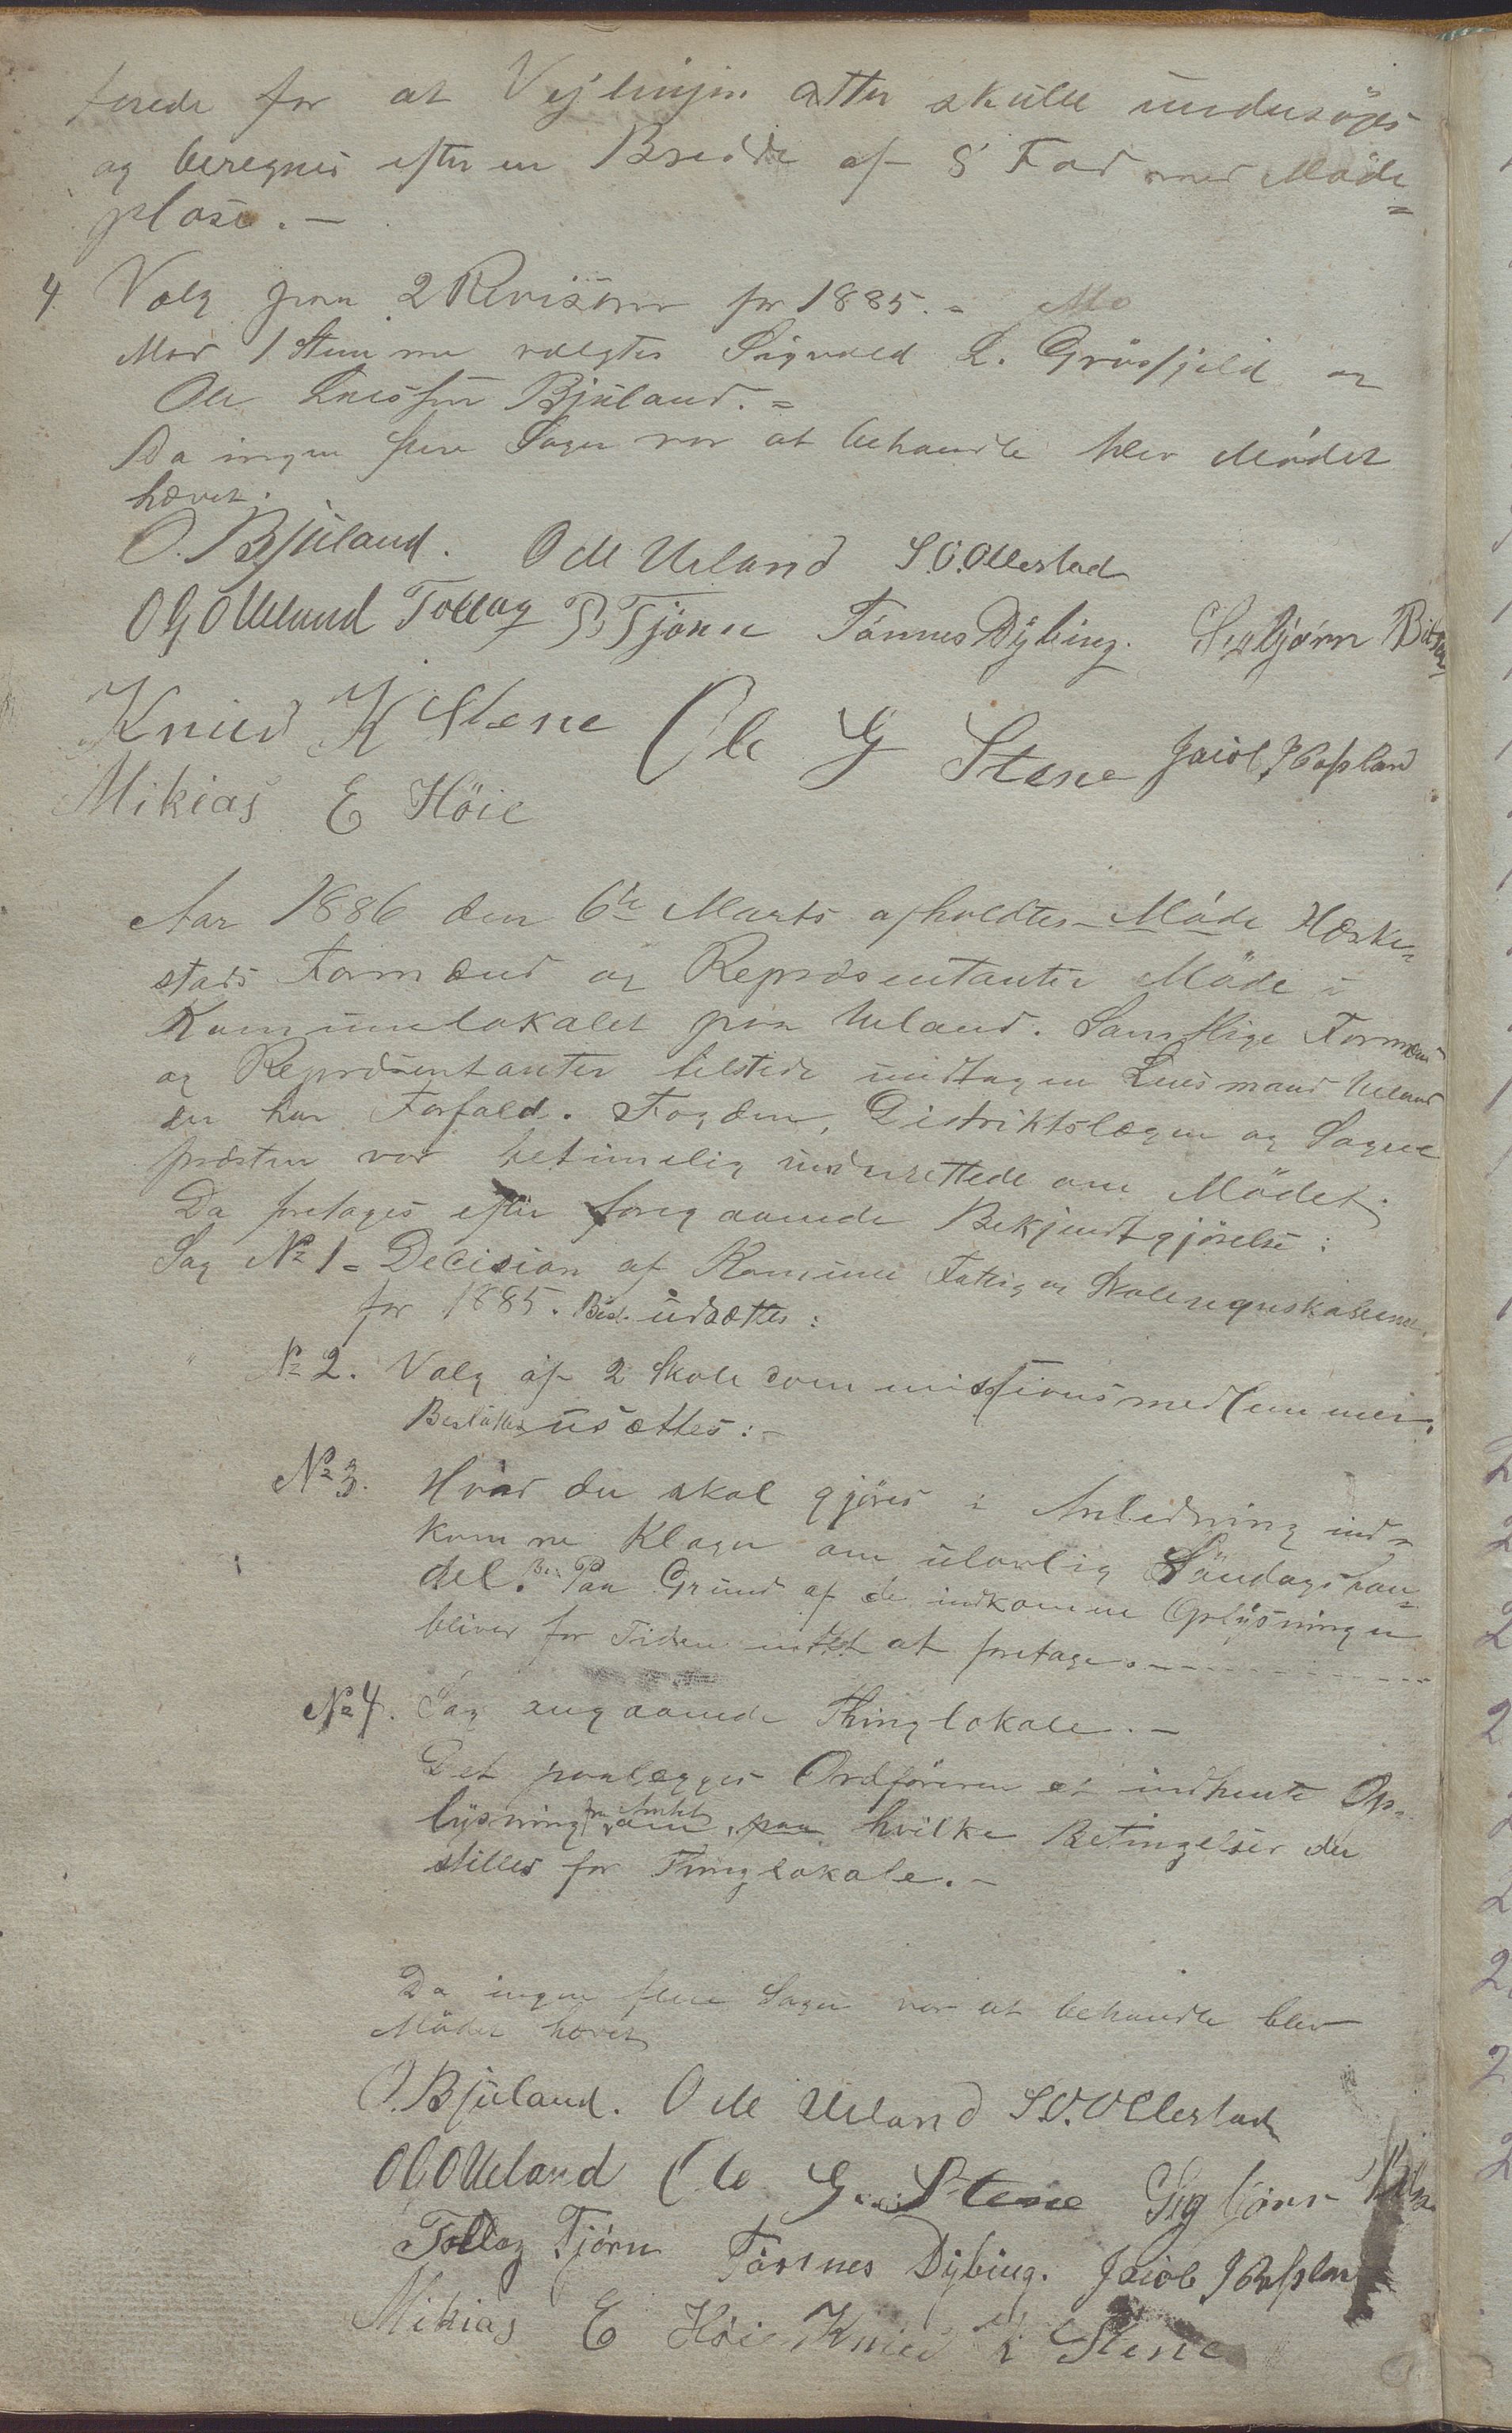 for at Vejlinjen atter skulle undersøges
og beregnes efter en Bredde af 8 Fod med Møde=
plase. –
4 Valg paa 2 Revisorer for 1885. =
Mod 1 Stemme valgtes Sigvald L. Grøsfjeld og
Ole Larsson Bjuland. =
Da ingen flere Sager var at behandle blev Mødet
hævet.
O. Bjuland. O M Ueland S. O. Ollestad
O G O Ueland Tollag P Tjörn Tönnes Dybing. Sigbjørn
Knud K Stene Ole G Stene Jacob J
Mikias E Höie
Aar 1886 den 6te Marts afholdtes Møde Heske=
stads Formænd og Repræsentanter Møde i
Kommunelokalet paa Ueland. Samtlige Formænd
og Repræsentanter tilstede undtagen Lensmand Ueland
der har Forfald. Fogden, Distriktslægen og Sogne
præsten var betimelig underrettede om Mødet.
Da foretages efter foregaaende Bekjendtgjørelse:
Sag No 1 = Decision af Kommune Fattig og Skoleregnskaberne
for 1885. Besl. udsættes:
" No 2. Valg af 2 Skolecommissionsmedlemmer.
Besluttes usættes: –
No 3. Hvad der skal gjøres i Anledning ind=
komne Klager om ulovlig Søndagshan=
del. Bes. Paa Grund af de indkomne Oplysninger
bliver for Tiden intet at foretage. –
No 4. Sag angaaende Thinglokale. –
Det paalægges Ordføreren at indhente Op=
lysning fra Amtet om paa hvilke Betingelser der
stilles for Thinglokale. –
Da ingen flere Sager var at behandle blev
Mødet hævet
O. Bjuland. O M Ueland S. O. Ollestad
O G O Ueland Ole G. Stene Sigbjørn
Tollag Tjörn Tönnes Dybing. Jacob J
Mikias E Höie Knud K Stene